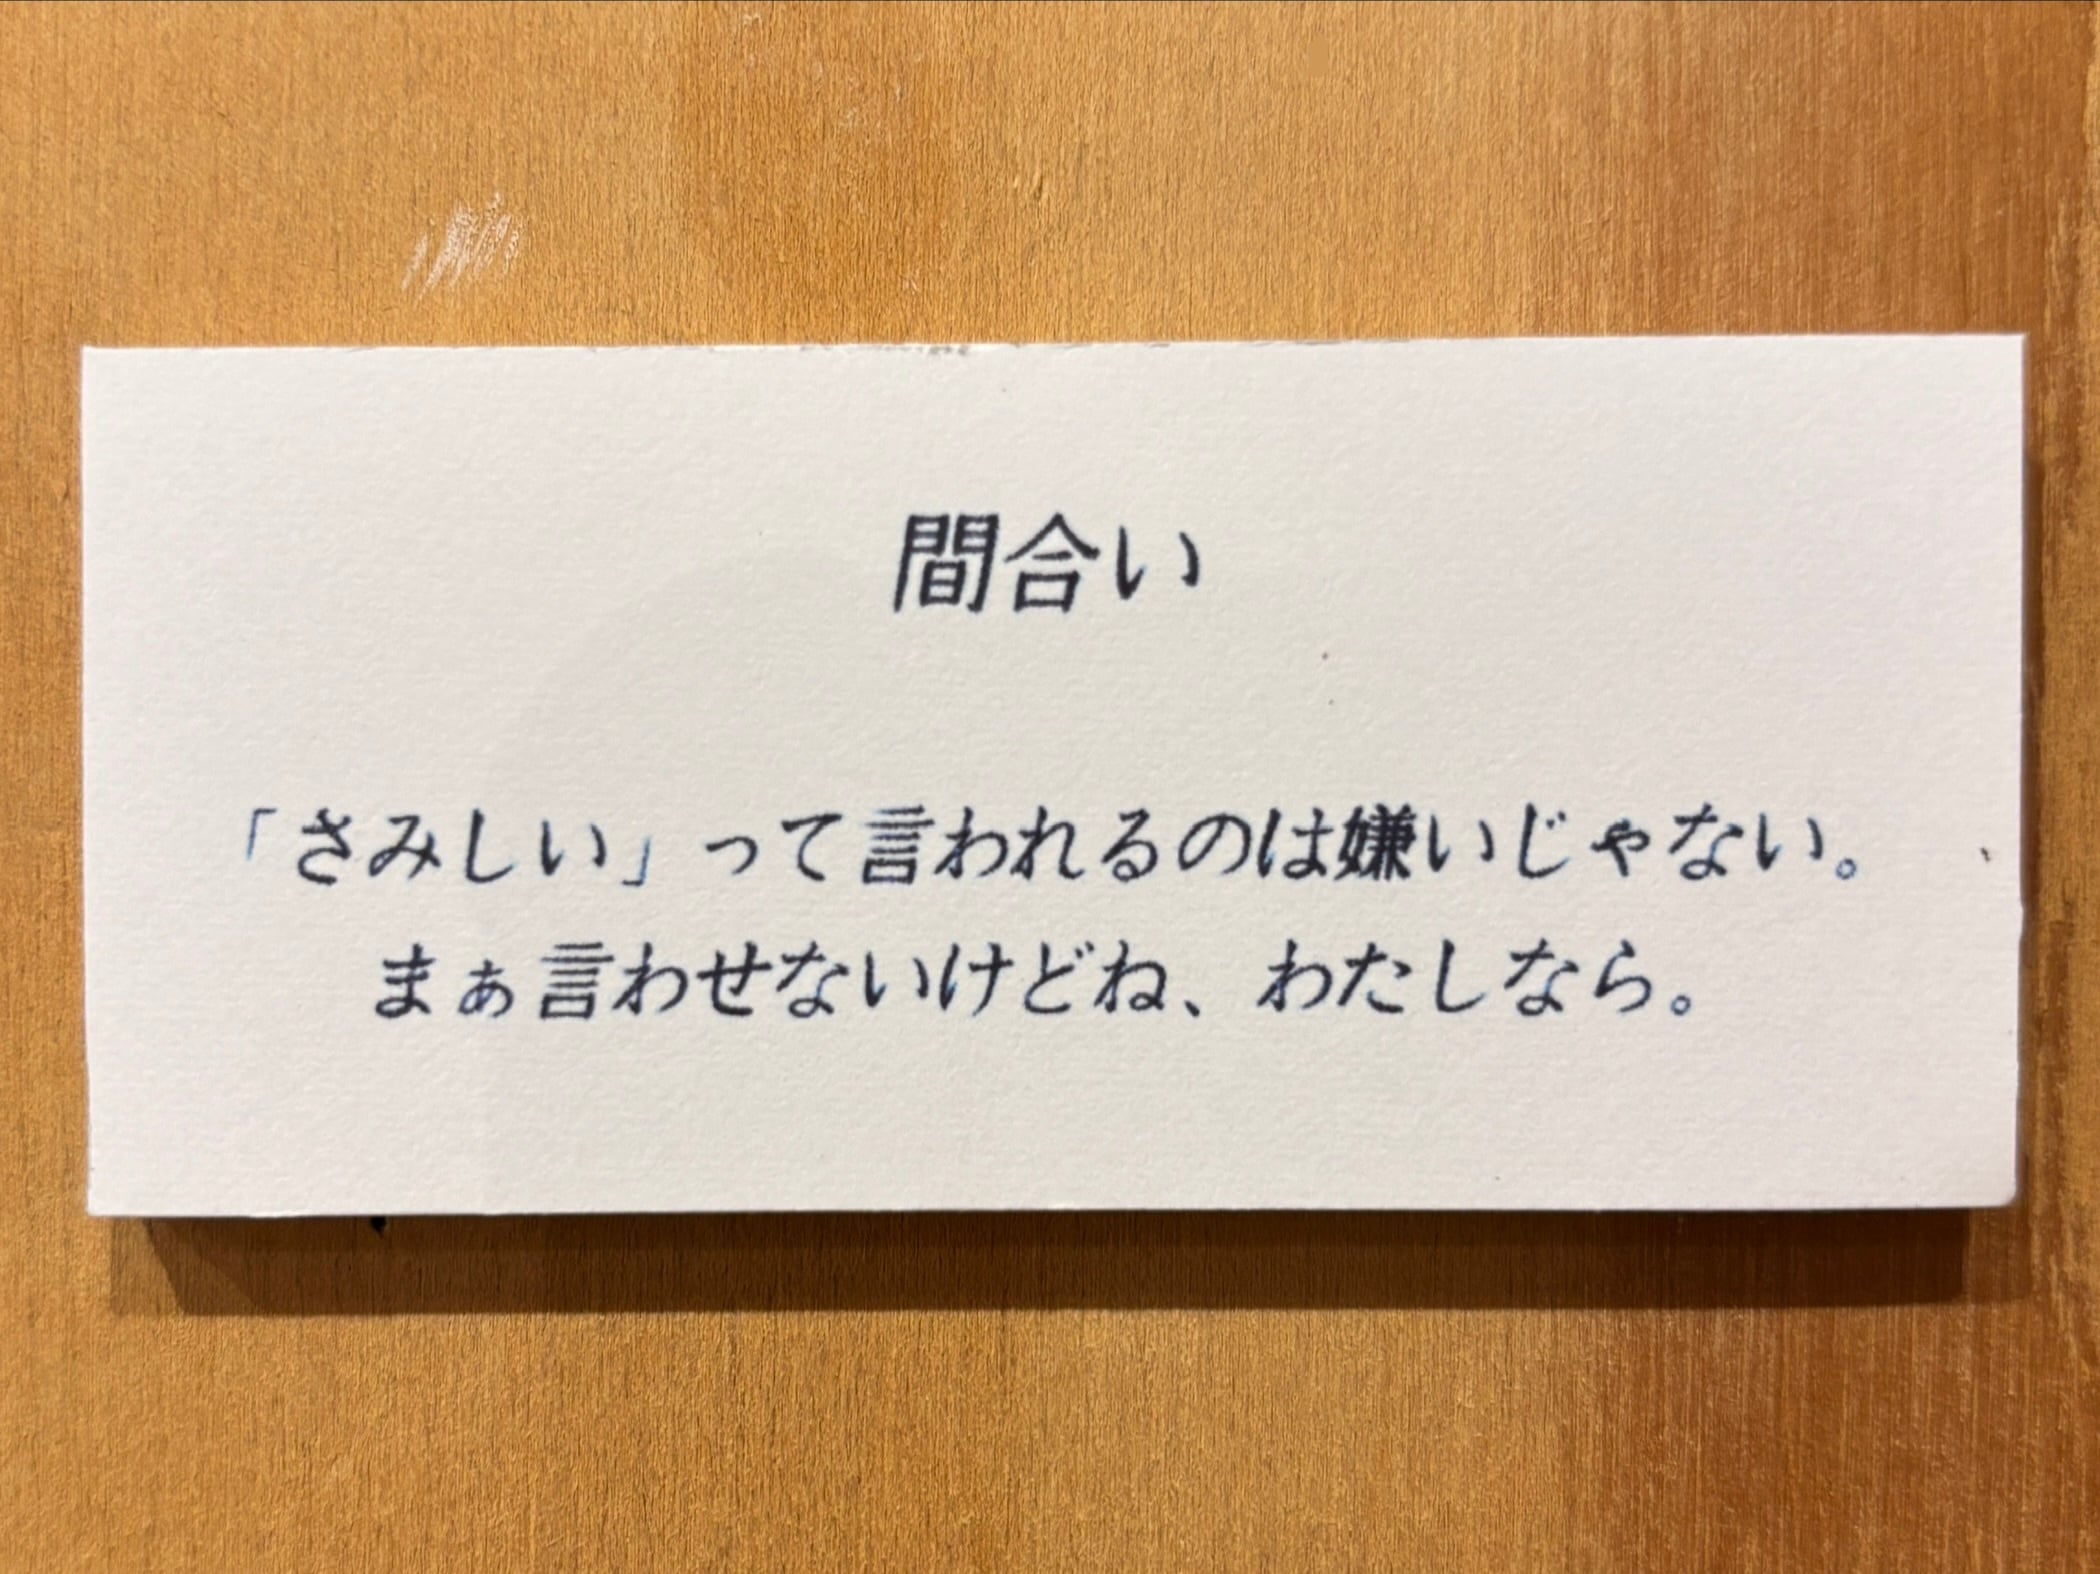 間合い
「さみしい」って言われるのは嫌いじゃない。
まぁ言わせないけどね、わたしなら。